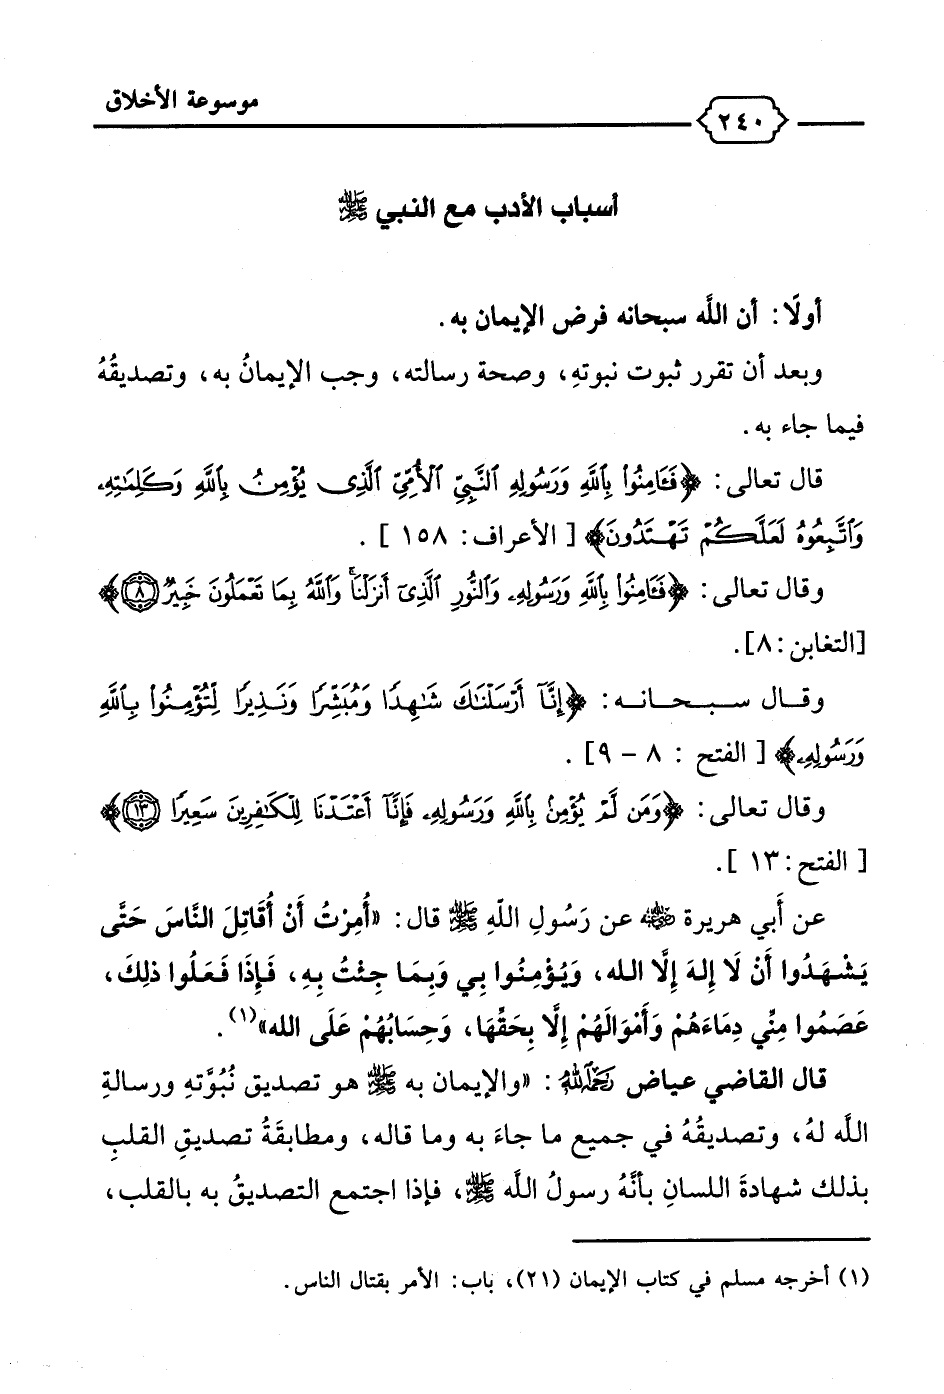 موسوعة الأخلاق
٢٤٠
أسباب الأدب مع النبي ﷺ
أولًا: أن اللَّه سبحانه فرض الإيمان به.
وبعد أن تقرر ثبوت نبوتهِ، وصحة رسالته، وجب الإيمانُ به، وتصديقُهُ
فيما جاء به.
قال تعالى: ﴿فَـَٔامِنُوا۟ بِٱللَّهِ وَرَسُولِهِ ٱلنَّبِىِّ ٱلْأُمِّىِّ ٱلَّذِى يُؤْمِنُ بِٱللَّهِ وَكَلِمَـٰتِهِۦ
وَٱتَّبِعُوهُ لَعَلَّكُمْ تَهْتَدُونَ﴾ [ الأعراف: ١٥٨ ] .
وقال تعالى: ﴿فَـَٔامِنُوا۟ بِٱللَّهِ وَرَسُولِهِۦ وَٱلنُّورِ ٱلَّذِىٓ أَنزَلْنَا ۚ وَٱللَّهُ بِمَا تَعْمَلُونَ خَبِيرٌ ٨﴾
[التغابن :٨].
وقال سبحانه: ﴿إِنَّآ أَرْسَلْنَـٰكَ شَـٰهِدًا وَمُبَشِّرًا وَنَذِيرًا لِّتُؤْمِنُوا۟ بِٱللَّهِ
وَرَسُولِهِۦ﴾ [ الفتح : ٨ – ٩] .
وقال تعالى: ﴿وَمَن لَّمْ يُؤْمِنۢ بِٱللَّهِ وَرَسُولِهِۦ فَإِنَّآ أَعْتَدْنَا لِلْكَـٰفِرِينَ سَعِيرًا ١٣﴾
[ الفتح:١٣ ].
عن أَبي هريرة رضي الله عنه عن رَسُولِ اللَّهِ ﷺ قال: «أُمِرْتُ أَنْ أُقَاتِلَ النَّاسَ حَتَّى
يَشْهَدُوا أَنْ لَا إِلهَ إِلَّا الله، وَيُؤْمِنُوا بِي وَبِمَا جِئْتُ بِهِ، فَإِذَا فَعَلُوا ذلِكَ،
عَصَمُوا مِنِّي دِمَاءَهُمْ وَأَمْوَالَهُمْ إِلَّا بِحَقِّهَا، وَحِسَابُهُمْ عَلَى الله»(١).
قال القاضي عياض رحمه الله: «والإيمان به ﷺ هو تصديق نُبُوَّتهِ ورسالةِ
اللَّه لهُ، وتصديقُهُ في جميع ما جاءَ به وما قاله، ومطابقَةُ تصديقِ القلبِ
بذلك شهادةَ اللسانِ بأنَّهُ رسولُ اللَّه ﷺ، فإذا اجتمع التصديقُ به بالقلب،
(١) أخرجه مسلم في كتاب الإيمان (٢١)، باب: الأمر بقتال الناس.